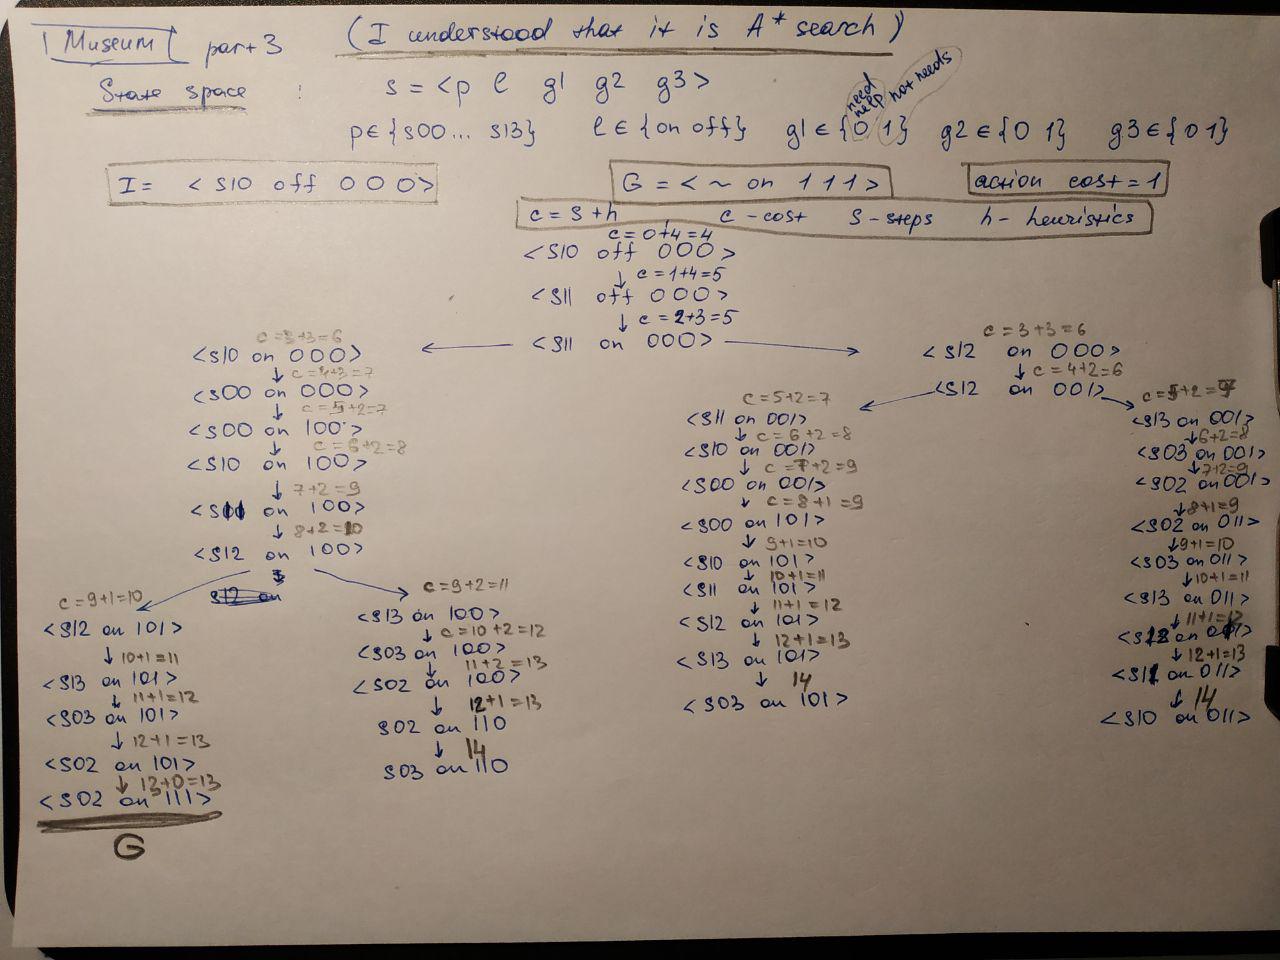 Museum part 3 (I understood that it is A* search)
State space : s = <p l g1 g2 g3>
need help not needs
p ∈ {s00 ... s13} l ∈ {on off} g1 ∈ {0 1} g2 ∈ {0 1} g3 ∈ {0 1}
I = <s10 off 0 0 0> G = <~ on 1 1 1> action cost = 1
c = s + h c - cost s - steps h - heuristics
c = 0+4=4
<s10 off 000>
↓ c = 1+4=5
<s11 off 000>
↓ c = 2+3=5
<s11 on 000>
c = 3+3=6
<s10 on 000>
↓ c = 4+3=7
<s00 on 000>
↓ c = 5+2=7
<s00 on 100>
↓ c = 6+2=8
<s10 on 100>
↓ 7+2=9
<s11 on 100>
↓ 8+2=10
<s12 on 100>
s12 on
c = 9+1=10
<s12 on 101>
↓ 10+1=11
<s13 on 101>
↓ 11+1=12
<s03 on 101>
↓ 12+1=13
<s02 on 101>
↓ 13+0=13
<s02 on 111>
G
c = 9+2=11
<s13 on 100>
↓ c = 10+2=12
<s03 on 100>
↓ 11+2=13
<s02 on 100>
↓ 12+1=13
s02 on 110
↓ 14
s03 on 110
c = 3+3=6
<s12 on 000>
↓ c = 4+2=6
<s12 on 001>
c = 5+2=7
<s11 on 001>
↓ c = 6+2=8
<s10 on 001>
↓ c = 7+2=9
<s00 on 001>
↓ c = 8+1=9
<s00 on 101>
↓ 9+1=10
<s10 on 101>
↓ 10+1=11
<s11 on 101>
↓ 11+1=12
<s12 on 101>
↓ 12+1=13
<s13 on 101>
↓ 14
<s03 on 101>
c = 5+2=7
<s13 on 001>
↓ 6+2=8
<s03 on 001>
↓ 7+2=9
<s02 on 001>
↓ 8+1=9
<s02 on 011>
↓ 9+1=10
<s03 on 011>
↓ 10+1=11
<s13 on 011>
↓ 11+1=12
<s12 on 011>
↓ 12+1=13
<s11 on 011>
↓ 14
<s10 on 011>